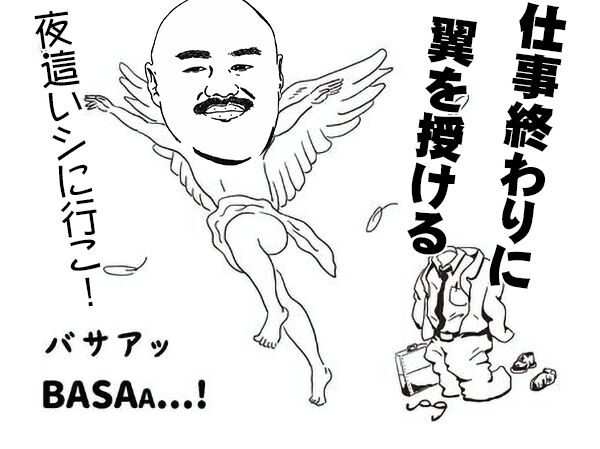 仕事終わりに
翼を授ける
夜這いシに行こ！
バサアッ
BASAA...!